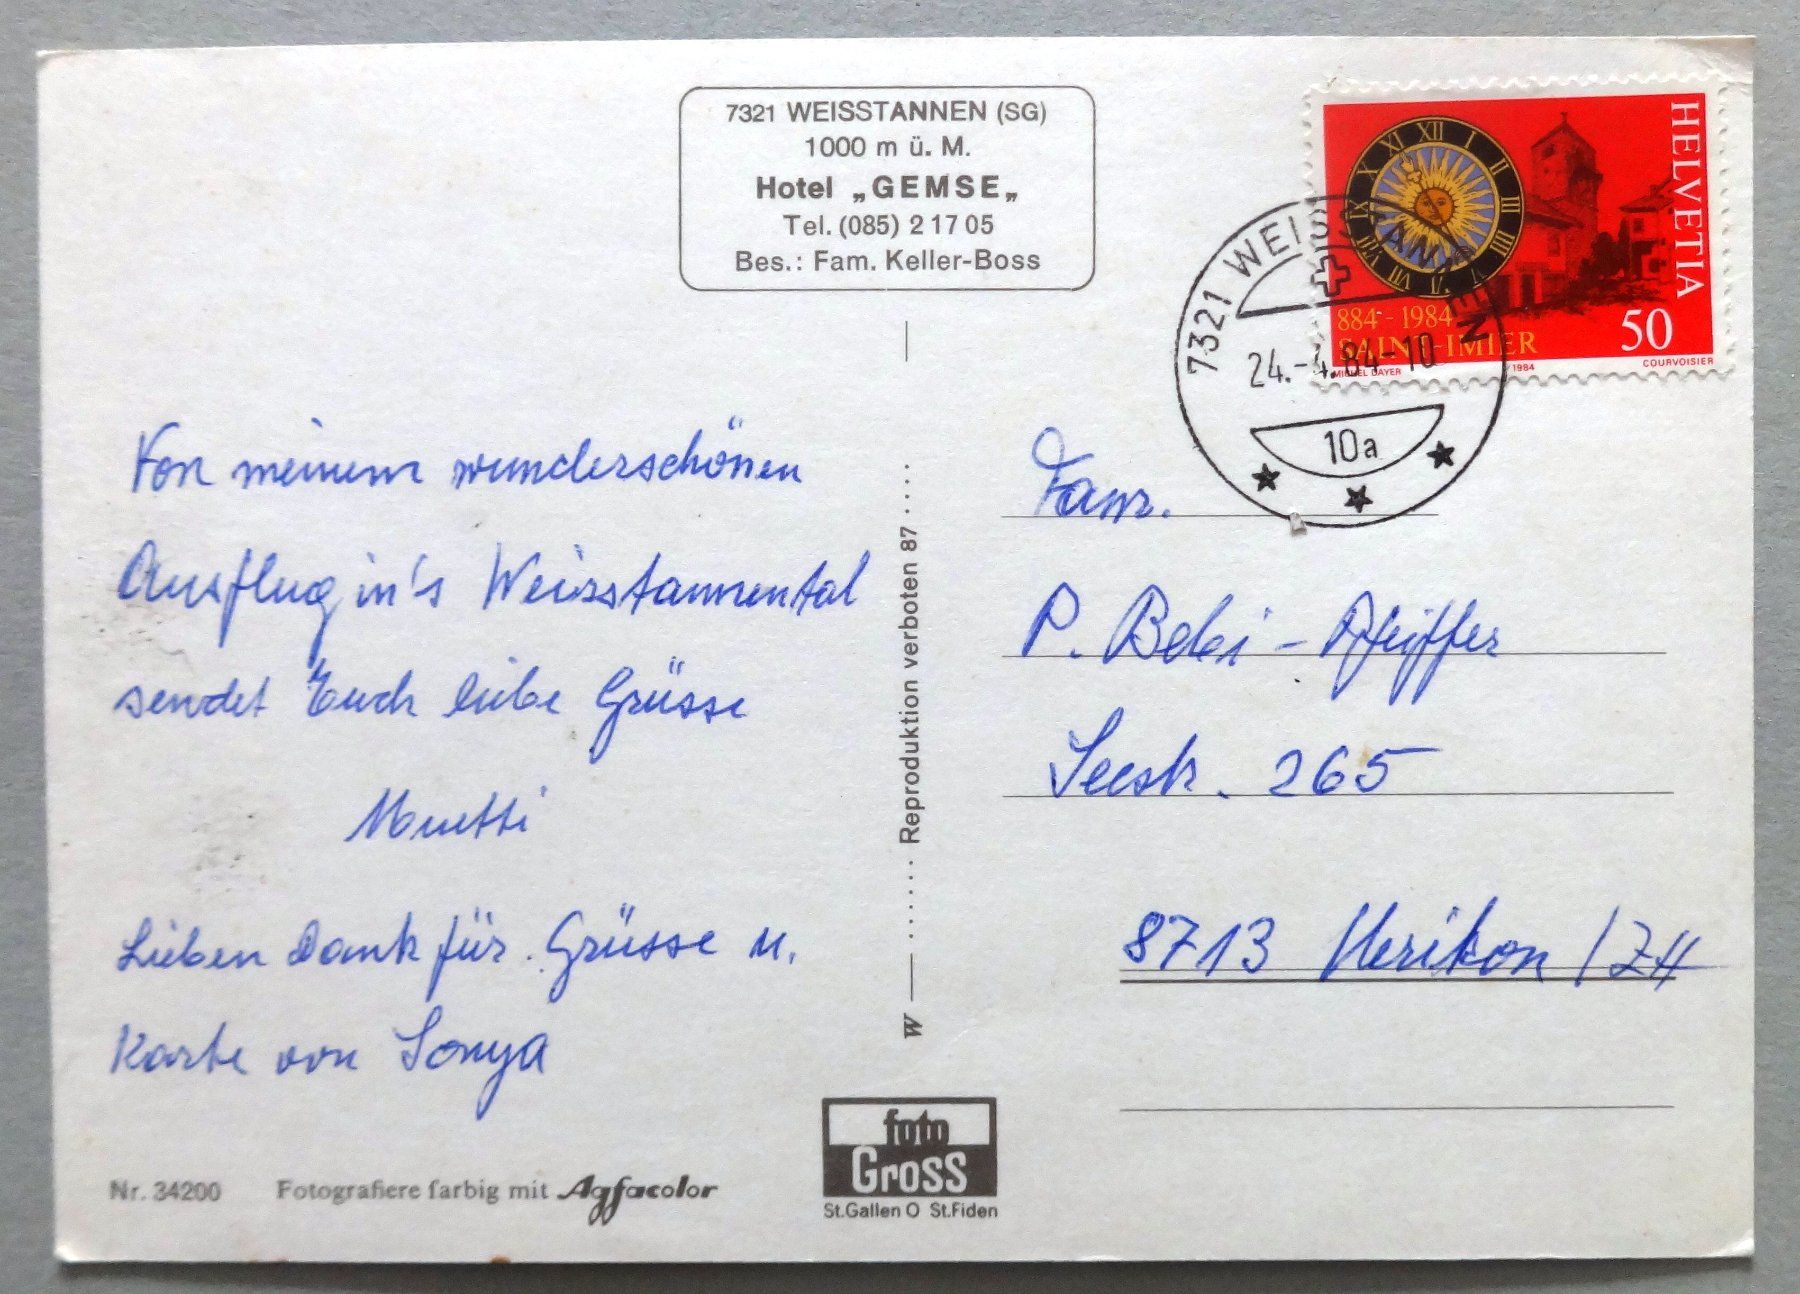 7321 WEISSTANNEN (SG)
1000 m ü. M.
Hotel „GEMSE„
Tel. (085) 2 17 05
Bes.: Fam. Keller-Boss
HELVETIA
XII I II III IIII V VI VII VIII IX X XI
884-1984
SAINT-IMIER
50
MICHEL DAYER 1984 COURVOISIER
7321 WEISSTANNEN
24.-4.84-10
10a
Von meinem wunderschönen
Ausflug in's Weisstannental
sendet Euch liebe Grüsse
Muetti
Lieben Dank für Grüsse u.
Karte von Sonya
W Reproduktion verboten 87
Fam.
P. Bebi-Pfeiffer
Seestr. 265
8713 Uerikon /ZH
Nr. 34200 Fotografiere farbig mit Agfacolor
foto
Gross
St.Gallen O St.Fiden